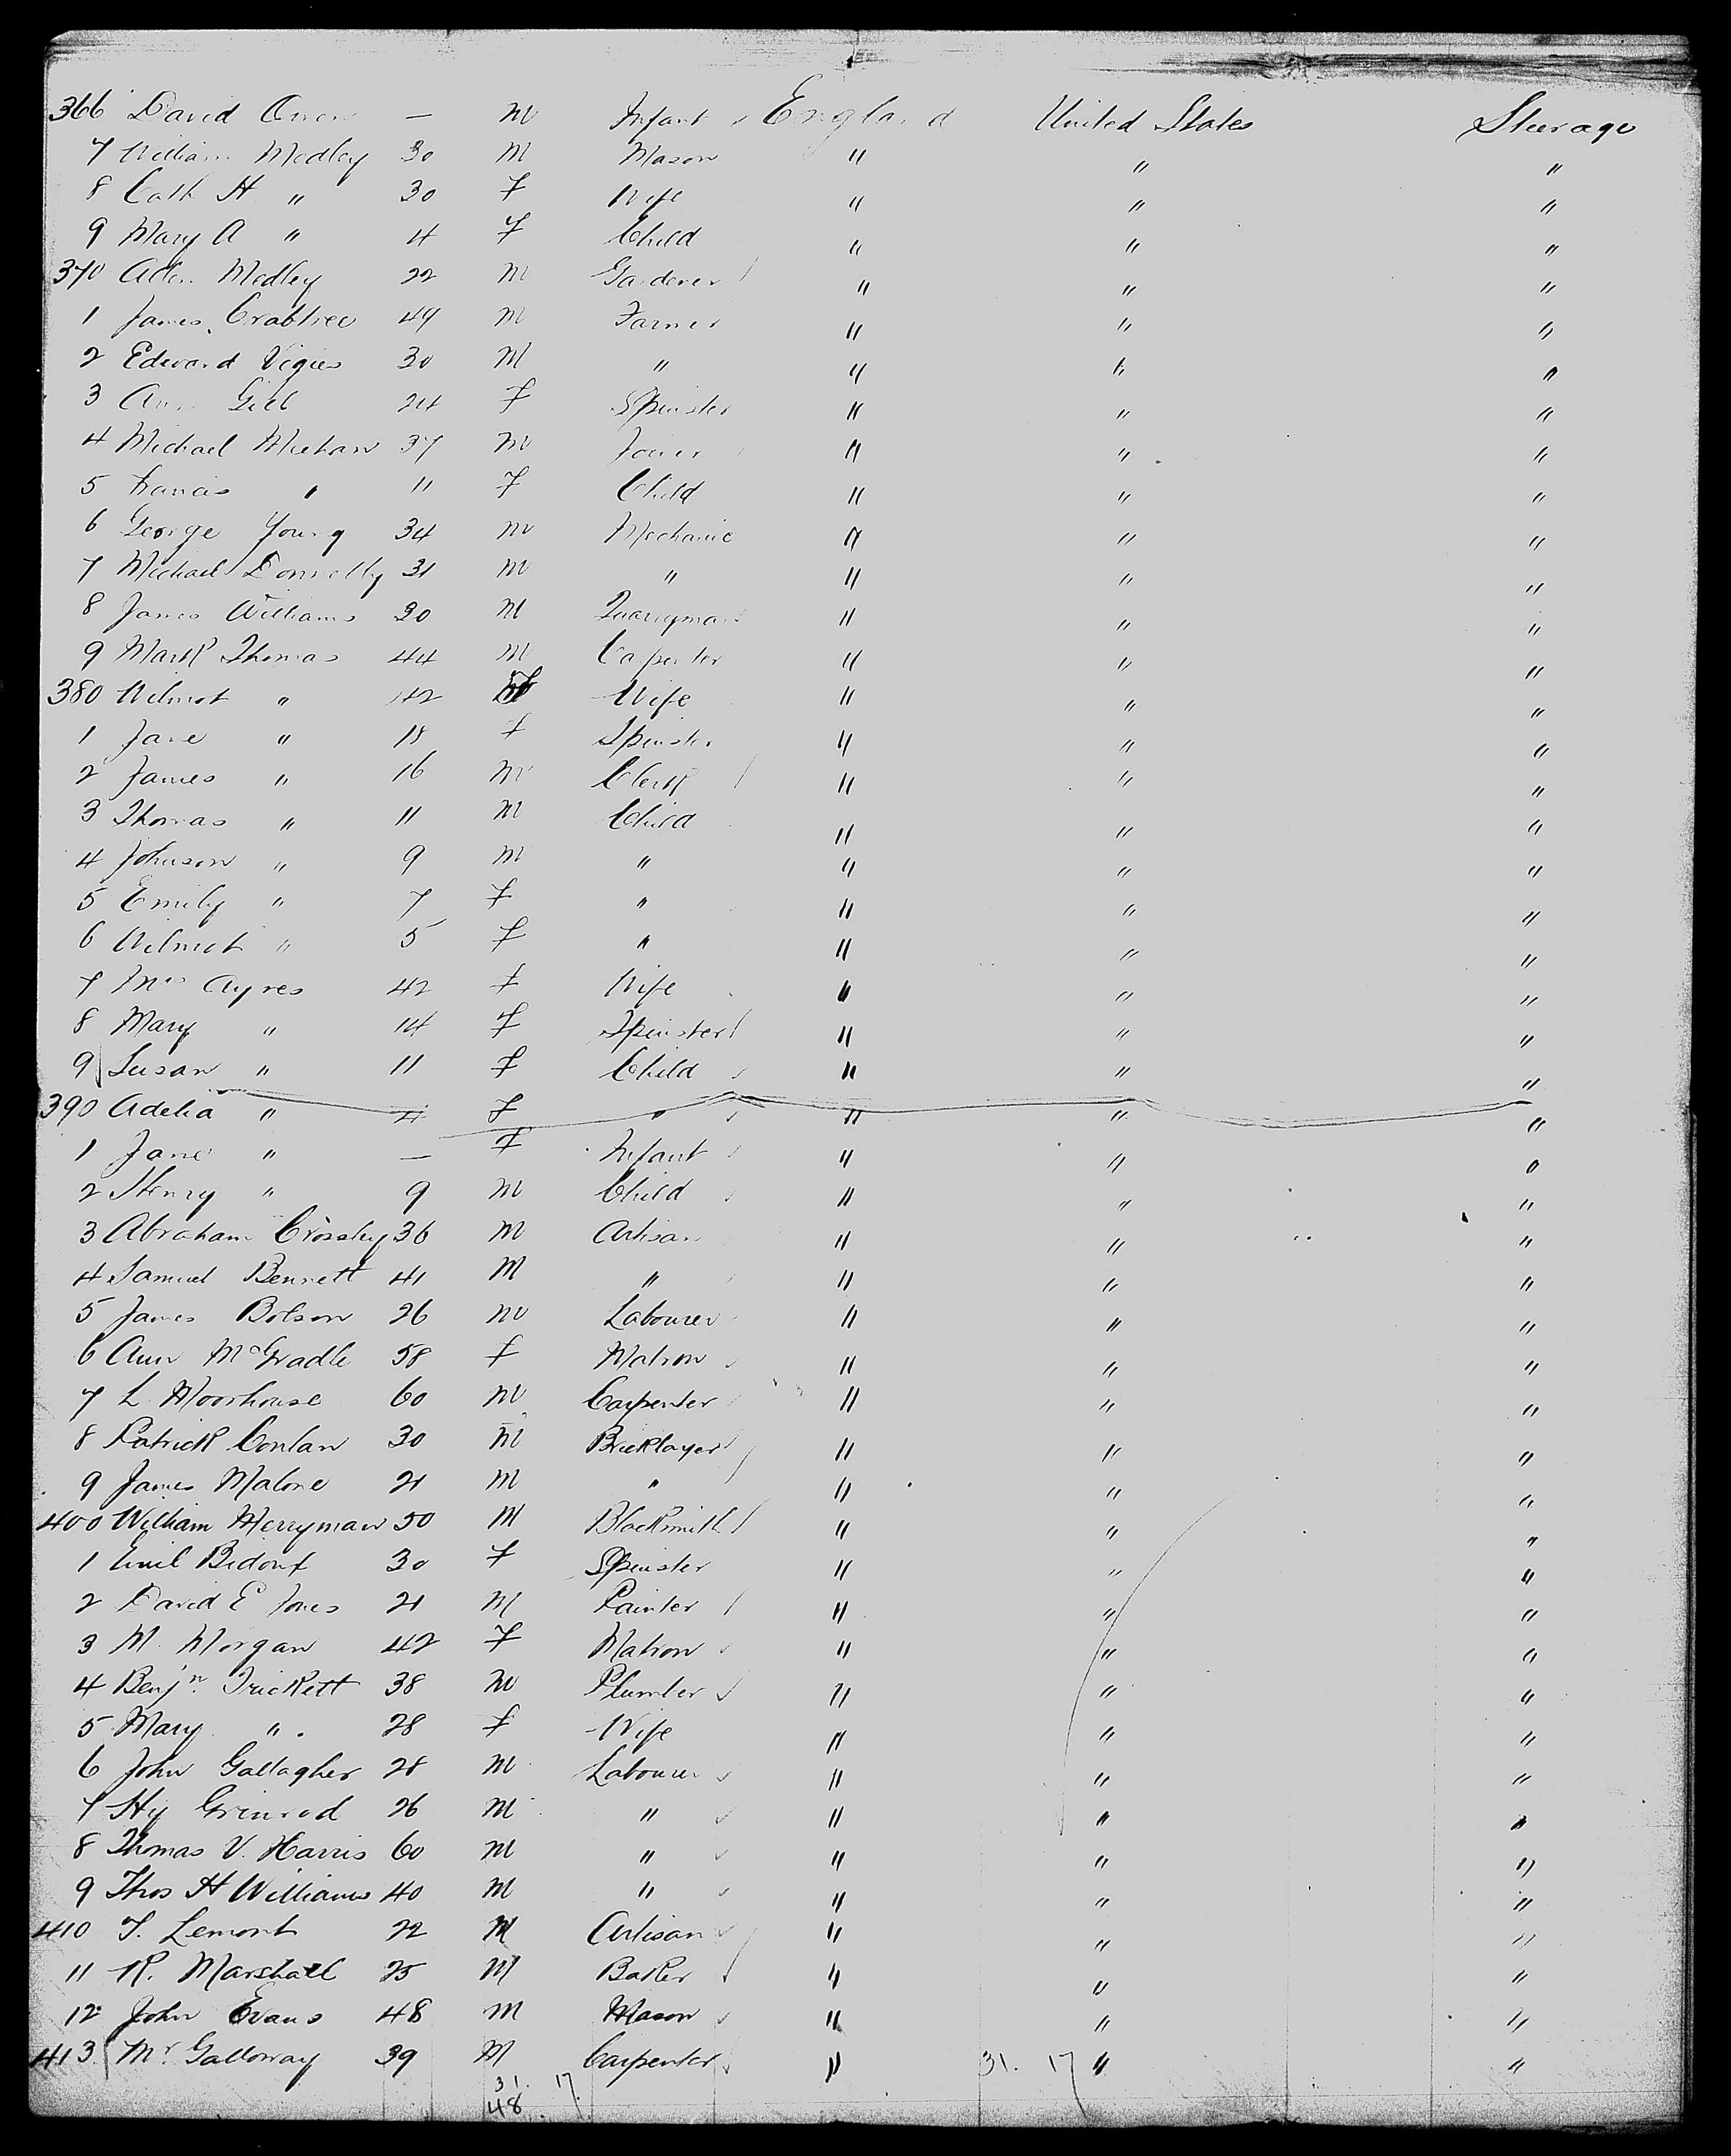 366 David Owen — M Infant England United States Steerage
7 William Medley 30 M Mason " " "
8 Cath H " 30 F Wife " " "
9 Mary A " 4 F Child " " "
370 Medley 22 M Gardener " " "
1 James Crabtree 49 M Farmer " " "
2 Edward 30 M " " " "
3 24 F Spinster " " "
4 Michael Meehan 37 M Joiner " " "
5 Francis " 11 F Child " " "
6 George Young 34 M Mechanic " " "
7 Michael Donnelly 31 M " " " "
8 James Williams 30 M Quarryman " " "
9 Mark Thomas 44 M Carpenter " " "
380 Wilmot " 42 F Wife " " "
1 Jane " 18 F Spinster " " "
2 James " 16 M Clerk " " "
3 Thomas " 11 M Child " " "
4 Johnson " 9 M " " " "
5 Emily " 7 F " " " "
6 Wilmot " 5 F " " " "
7 Mrs Ayres 42 F Wife " " "
8 Mary " 14 F Spinster " " "
9 Susan " 11 F Child " " "
390 Adelia " 4 F " " " "
1 Jane " — F Infant " " "
2 Henry " 9 M Child " " "
3 Abraham Crossley 36 M Artisan " " "
4 Samuel Bennett 41 M " " " "
5 James Botson 26 M Labourer " " "
6 Ann McGradle 58 F Matron " " "
7 L Moorhouse 60 M Carpenter " " "
8 Patrick Conlan 30 M Bricklayer " " "
9 James Malone 21 M " " " "
400 William Merryman 50 M Blacksmith " " "
1 Emil 30 F Spinster " " "
2 David E Jones 21 M Painter " " "
3 M. Morgan 42 F Matron " " "
4 Benjn. Trickett 38 M Plumber " " "
5 Mary " 28 F Wife " " "
6 John Gallagher 28 M Labourer " " "
7 Hy Grinrod 26 M " " " "
8 Thomas V. Harris 60 M " " " "
9 Thos H Williams 40 M " " " "
410 T. Lemont 22 M Artisan " " "
11 R. Marshall 25 M Baker " " "
12 John Evans 48 M Mason " " "
413 Mr. Galloway 39 M Carpenter " 31. 17 " "
31. 17.
48